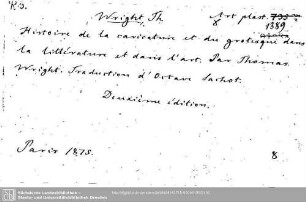 Wright, Th
Art plast. 733
1389
Histoire de la caricature et du grotesque dans
la littérature et dans l'art. Par Thomas
Wright. Traduction d'Octave Sachot.
Deuxième édition.
Paris 1875.
8
Sächsische Landesbibliothek -
Staats- und Universitätsbibliothek Dresden